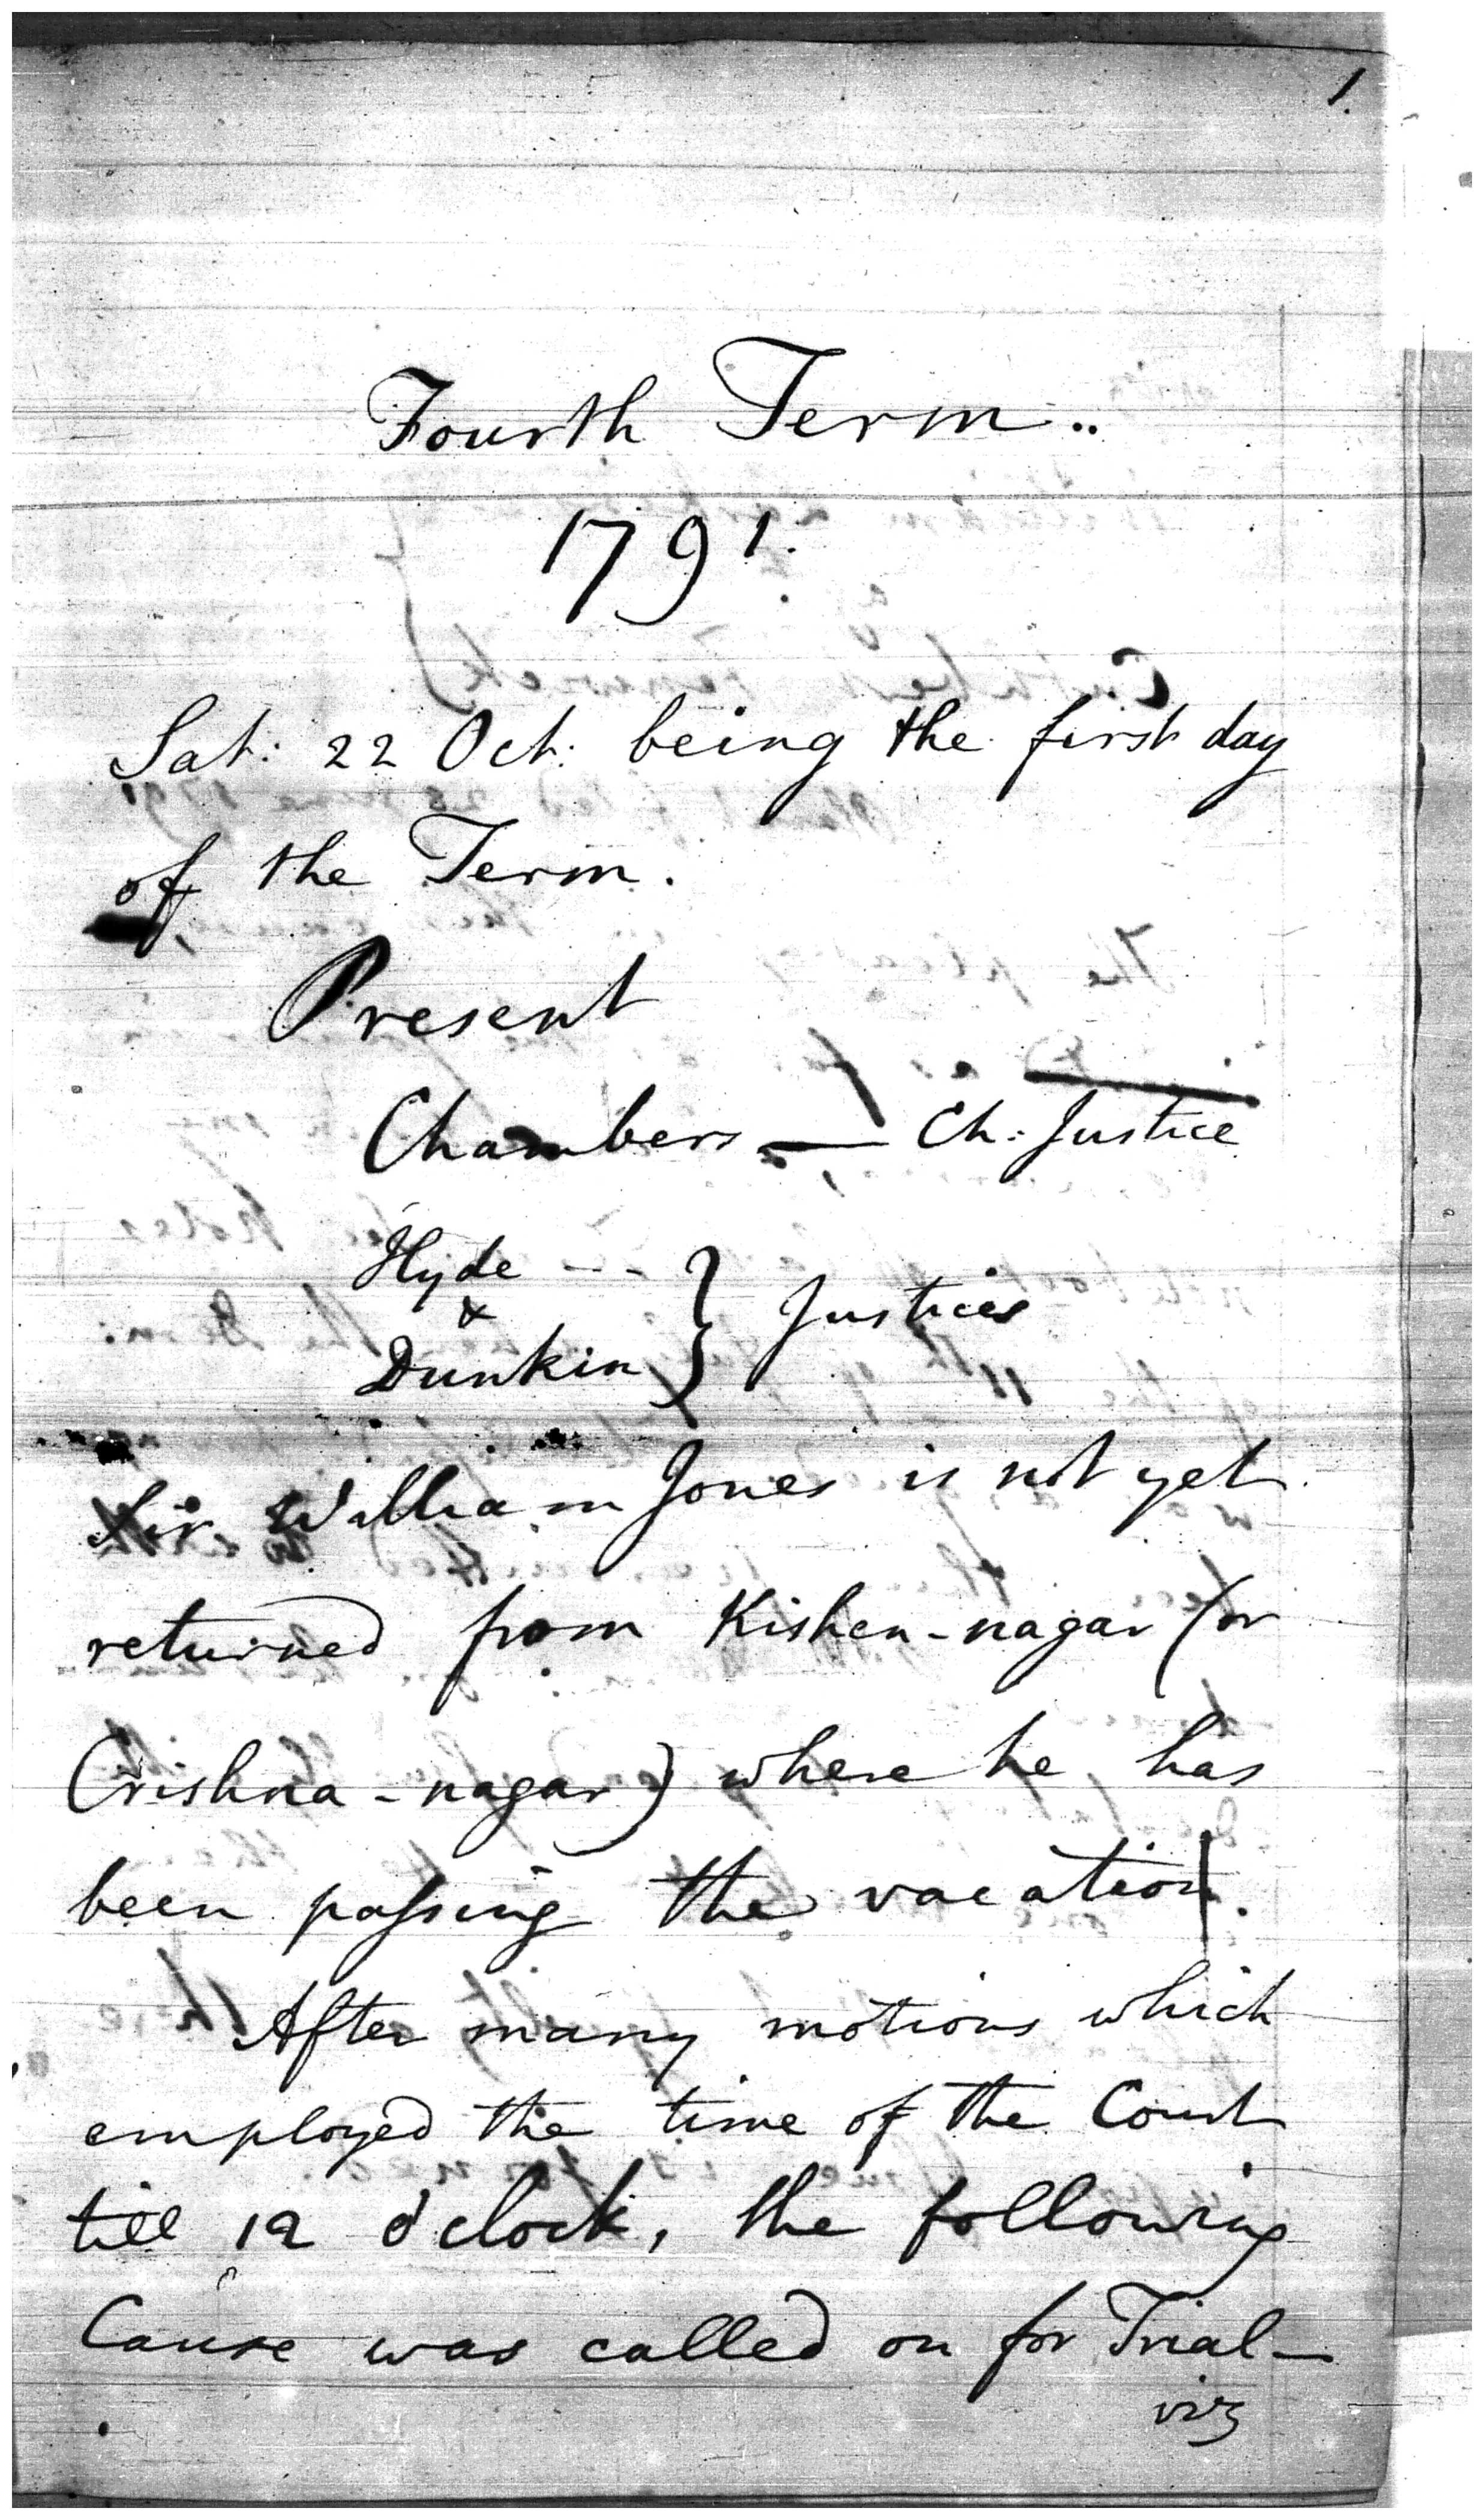 1.
Fourth Term..
1791.
Sat: 22 Oct: being the first day
of the Term.
Present
Chambers — Ch: Justice
Hyde --
&
Dunkin } Justices
Sir William Jones is not yet
returned from Kishen-nagar (or
Crishna-nagar) where he has
been passing the vacation.
After many motions which
employed the time of the Court
till 12 o'clock, the following
Cause was called on for Trial—
viz